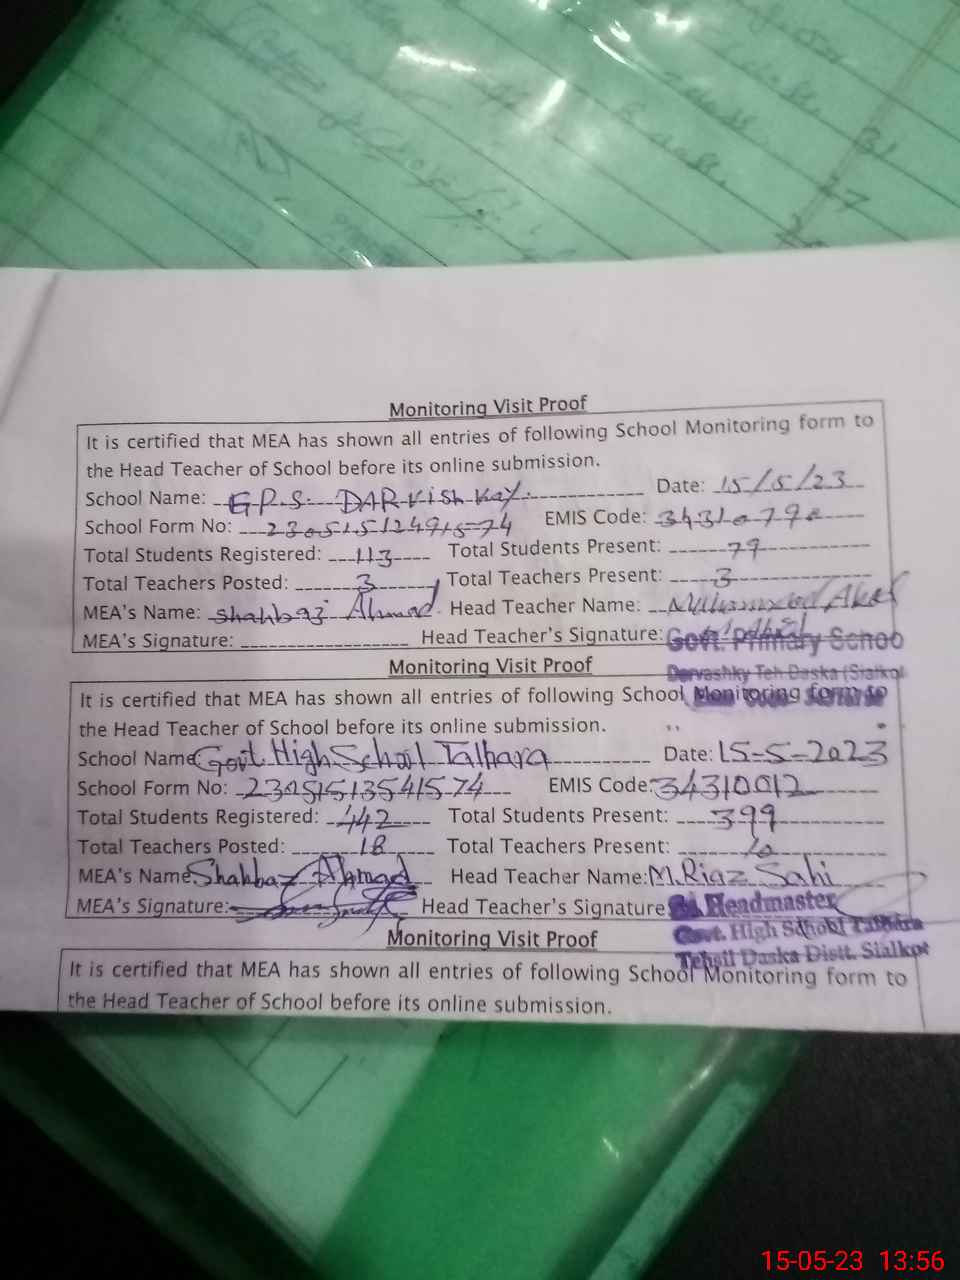 Monitoring Visit Proof
It is certified that MEA has shown all entries of following School Monitoring form to
the Head Teacher of School before its online submission.
School Name: G.P.S. DARVISH KAY. Date: 15/5/23
School Form No: EMIS Code:
Total Students Registered: 113 Total Students Present: 79
Total Teachers Posted: 3 Total Teachers Present: 3
MEA's Name: Shahbaz Ahmad Head Teacher Name:
MEA's Signature: Head Teacher's Signature:
Govt. Primary Schoo
Dervashky Teh Daska (Sialkot
Monitoring Visit Proof
It is certified that MEA has shown all entries of following School Monitoring form to
the Head Teacher of School before its online submission.
School Name Govt. High School Talhara Date: 15-5-2023
School Form No: EMIS Code: 34310012
Total Students Registered: 442 Total Students Present: 399
Total Teachers Posted: 18 Total Teachers Present:
MEA's Name: Shahbaz Ahmad Head Teacher Name: M.Riaz Sahi
MEA's Signature: Head Teacher's Signature
Headmaster
Govt. High School Talhara
Tehsil Daska Distt. Sialkot
Monitoring Visit Proof
It is certified that MEA has shown all entries of following School Monitoring form to
the Head Teacher of School before its online submission.
15-05-23 13:56